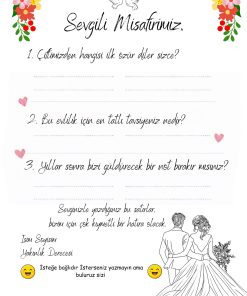 Sevgili Misafirimiz,
1. Çiftimizden hangisi ilk özür diler sizce?
2. Bu evlilik için en tatlı tavsiyeniz nedir?
3. Yıllar sonra bizi güldürecek bir not bırakır mısınız?
Sevginizle yazdığınız bu satırlar,
bizim için çok kıymetli bir hatıra olacak.
İsim Soyisim
Yakınlık Derecesi
İsteğe bağlıdır İsterseniz yazmayın ama
buluruz sizi